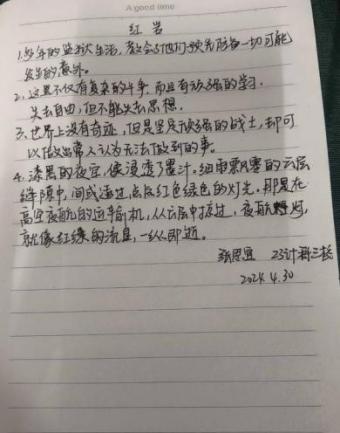 A good time
红岩
1.多年的监狱生活,教会了他们预先防备一切可能
发生的意外。
2.这里不仅有复杂的斗争,而且有顽强的学习.
失去自由,但不能失去思想.
3.世界上没有奇迹,但是坚贞顽强的战士,却可
以做出常人认为无法做到的事。
4.漆黑的夜空,像浸透了墨汁。细雨飘零的云层
缝隙中,间或透过点点红色绿色的灯光,那是在
高空夜航的运输机,从云层中掠过,夜航灯,
就像红绿的流星,一纵即逝。
张思宜 23计科三班
2024.4.30